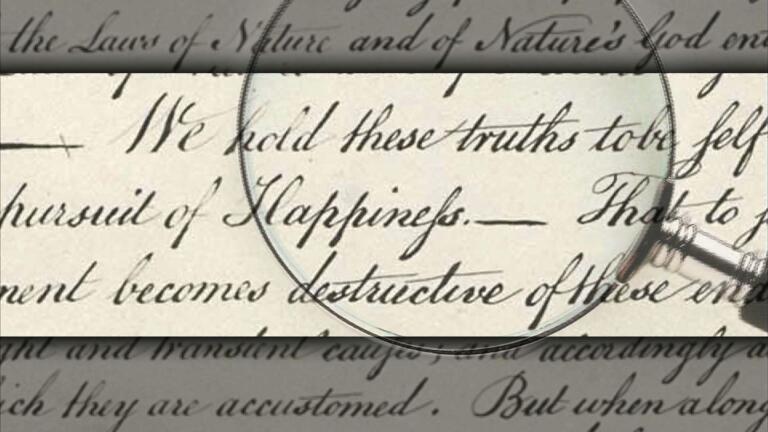 the Laws of Nature and of Nature's God ent
— We hold these truths to be ſelf
pursuit of Happineſs. — That to ſ
ment becomes destructive of these end
ght and transient cauſes; and accordingly a
ich they are accustomed. But when a long